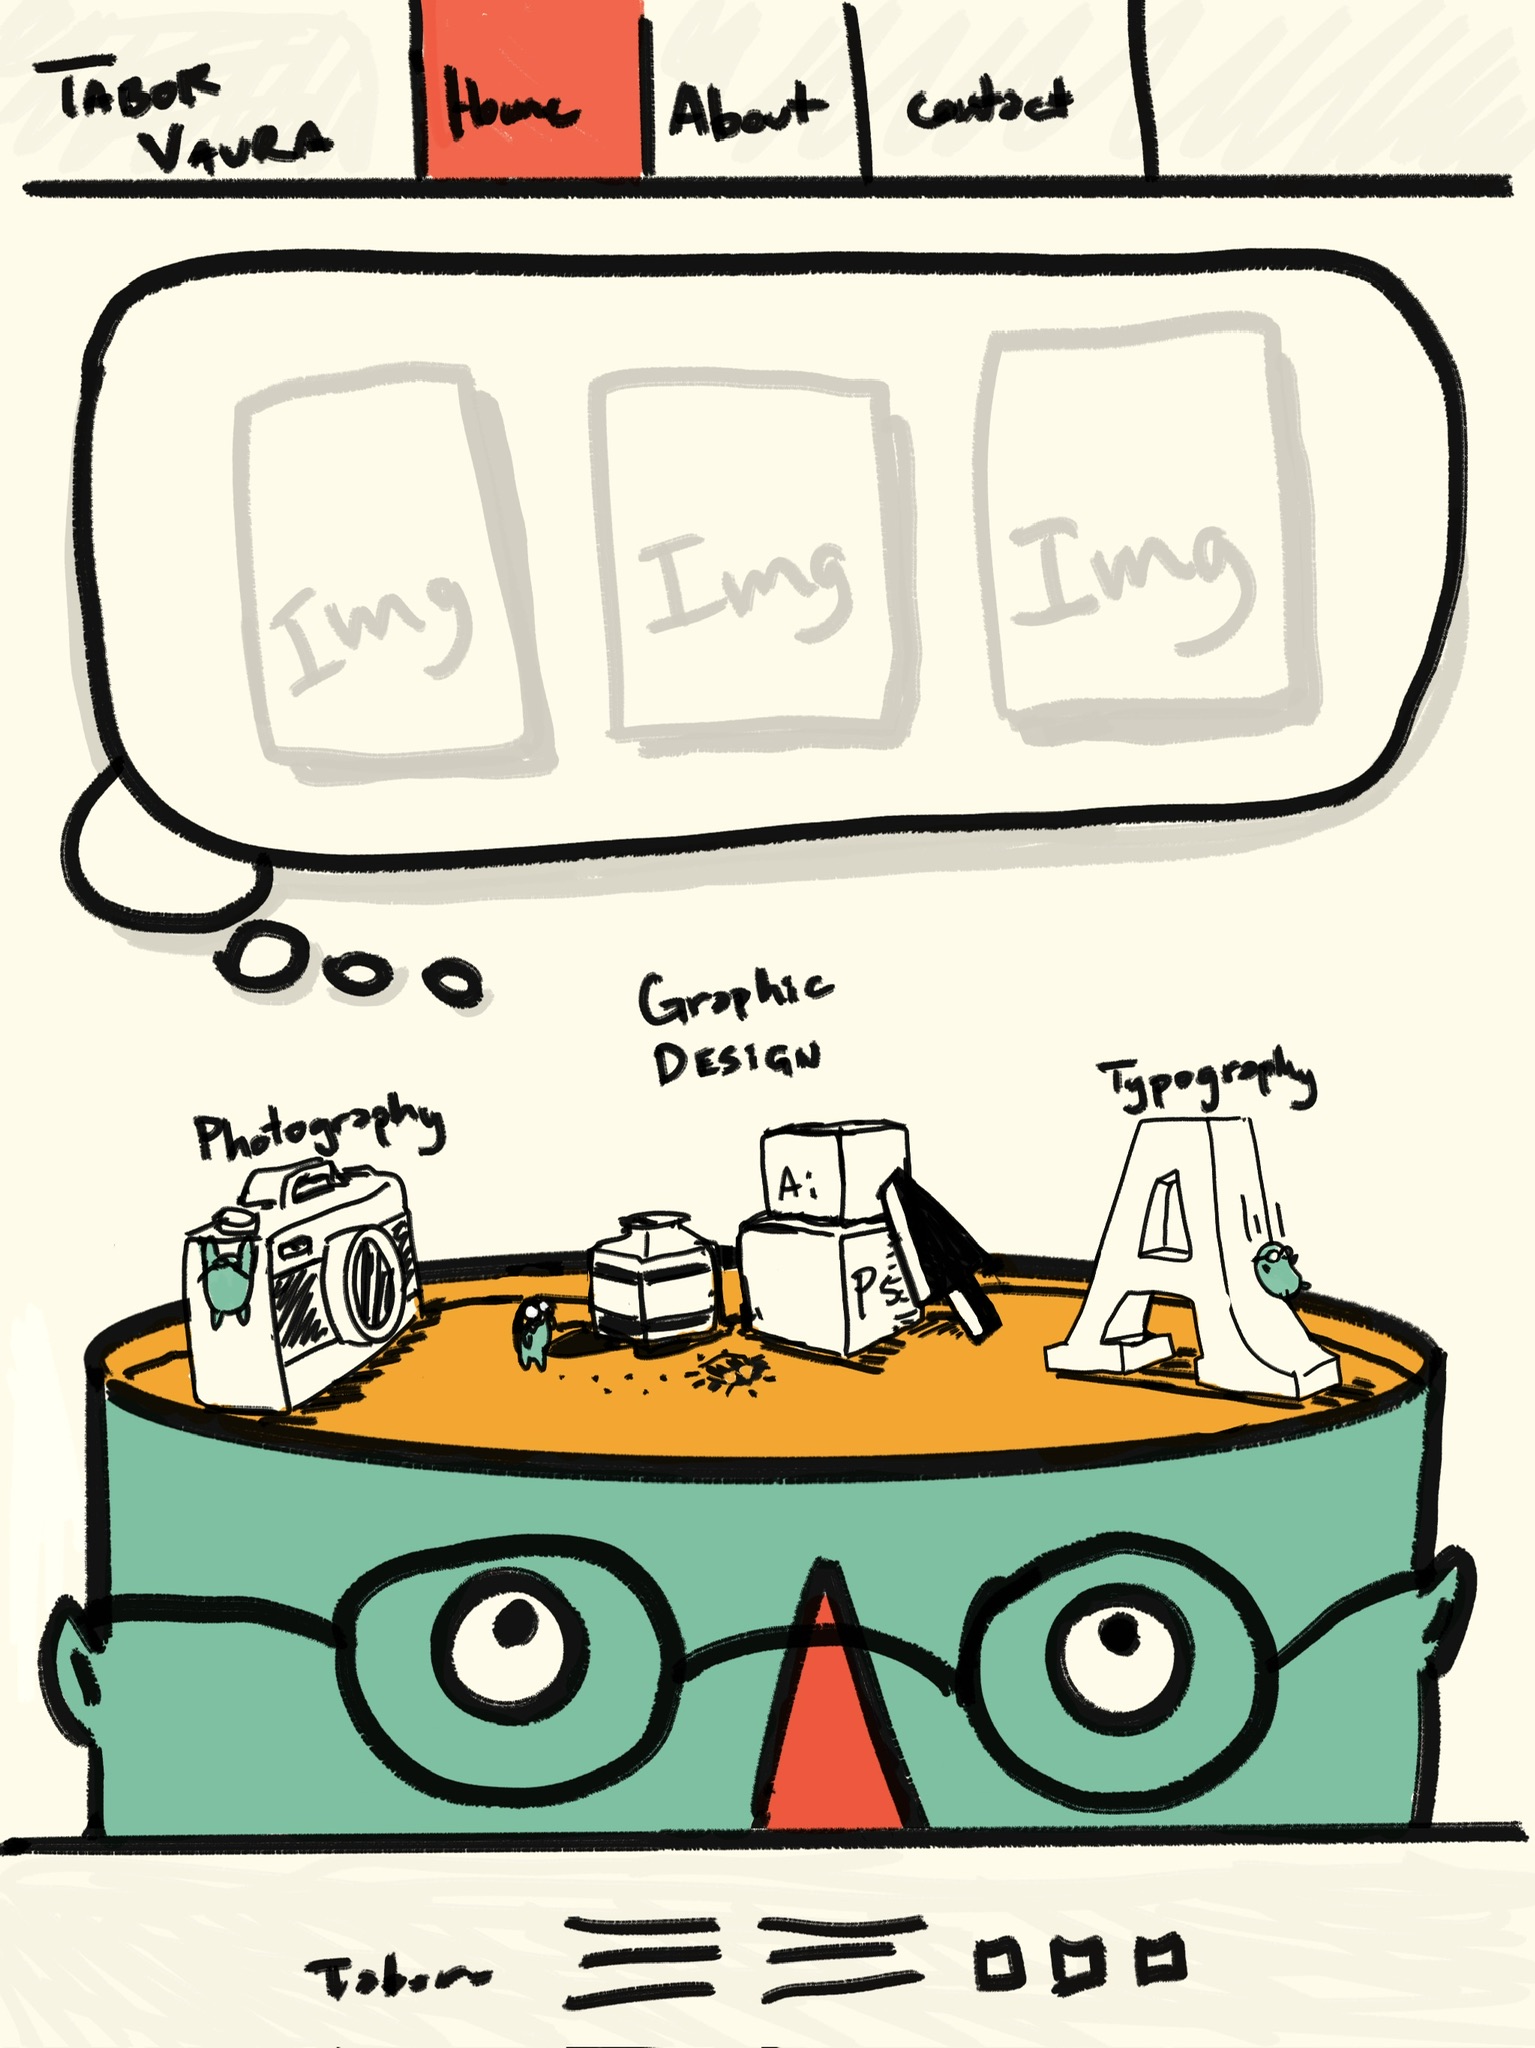 TABOR
VAURA
Home
About
contact
Img
Img
Img
Graphic
DESIGN
Typography
Photography
Ai
Ps
A